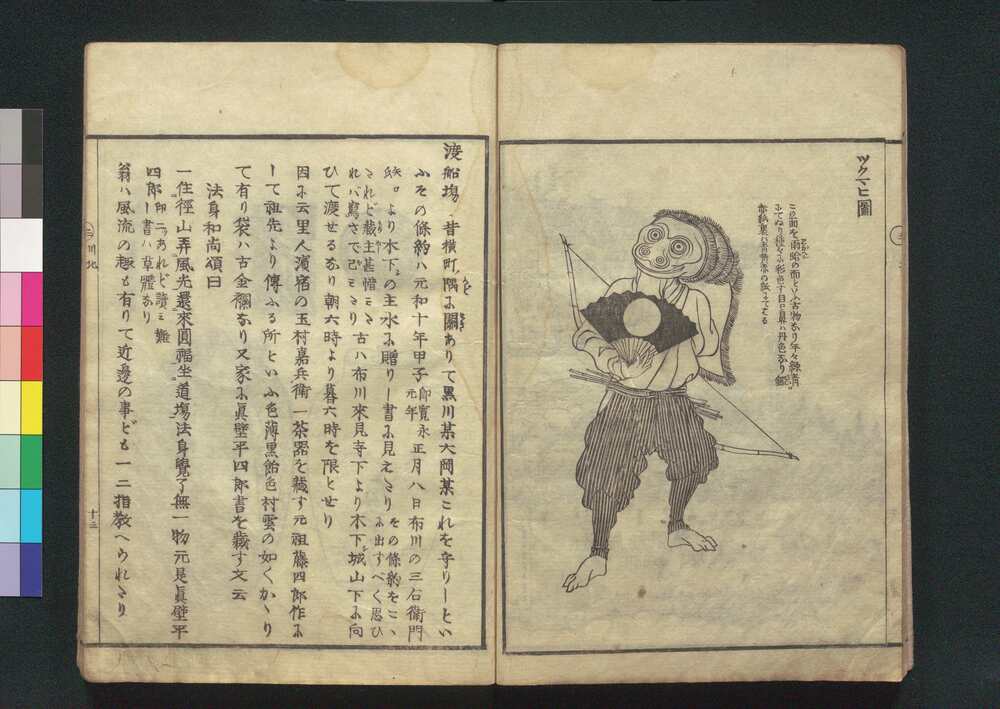 ツクマヒ圖
この面を雨蛤の面といふ古物なり年々緑青
にてぬり種々に彩色す目口鼻ハ丹色なり
渡船塲 昔横町ノ隅に關ありて黒川某大岡某これを守りしとい
ふその條約ハ元和十年甲子即寛永元年正月八日布川の三右衛門
より木下の主水に贈りし書に見えたり その條約をこゝ
に出すべく思ひ
たれど蔵主甚惜ミ
れバ寫さで已ミたり 古ハ布川來見寺下より木下城山下に向
ひて渡せるなり朝六時より暮六時を限とせり
因に云里人濵宿の玉村嘉兵衛一茶器を藏す元祖藤四郎作に
して祖先より傳ふる所といふ色薄黒飴色村雲の如くかゝり
て有り袋ハ古金襴なり又家に眞壁平四郎書を藏す文云
法身和尚頌曰
一住徑山弄風光還來圓福坐道塲法身覺了無一物元是眞壁平
四郎 印二ツあれど讀ミ難
し書ハ草體なり
翁ハ風流の趣も有りて近邊の事ども一二指教へられたり
川北
十三